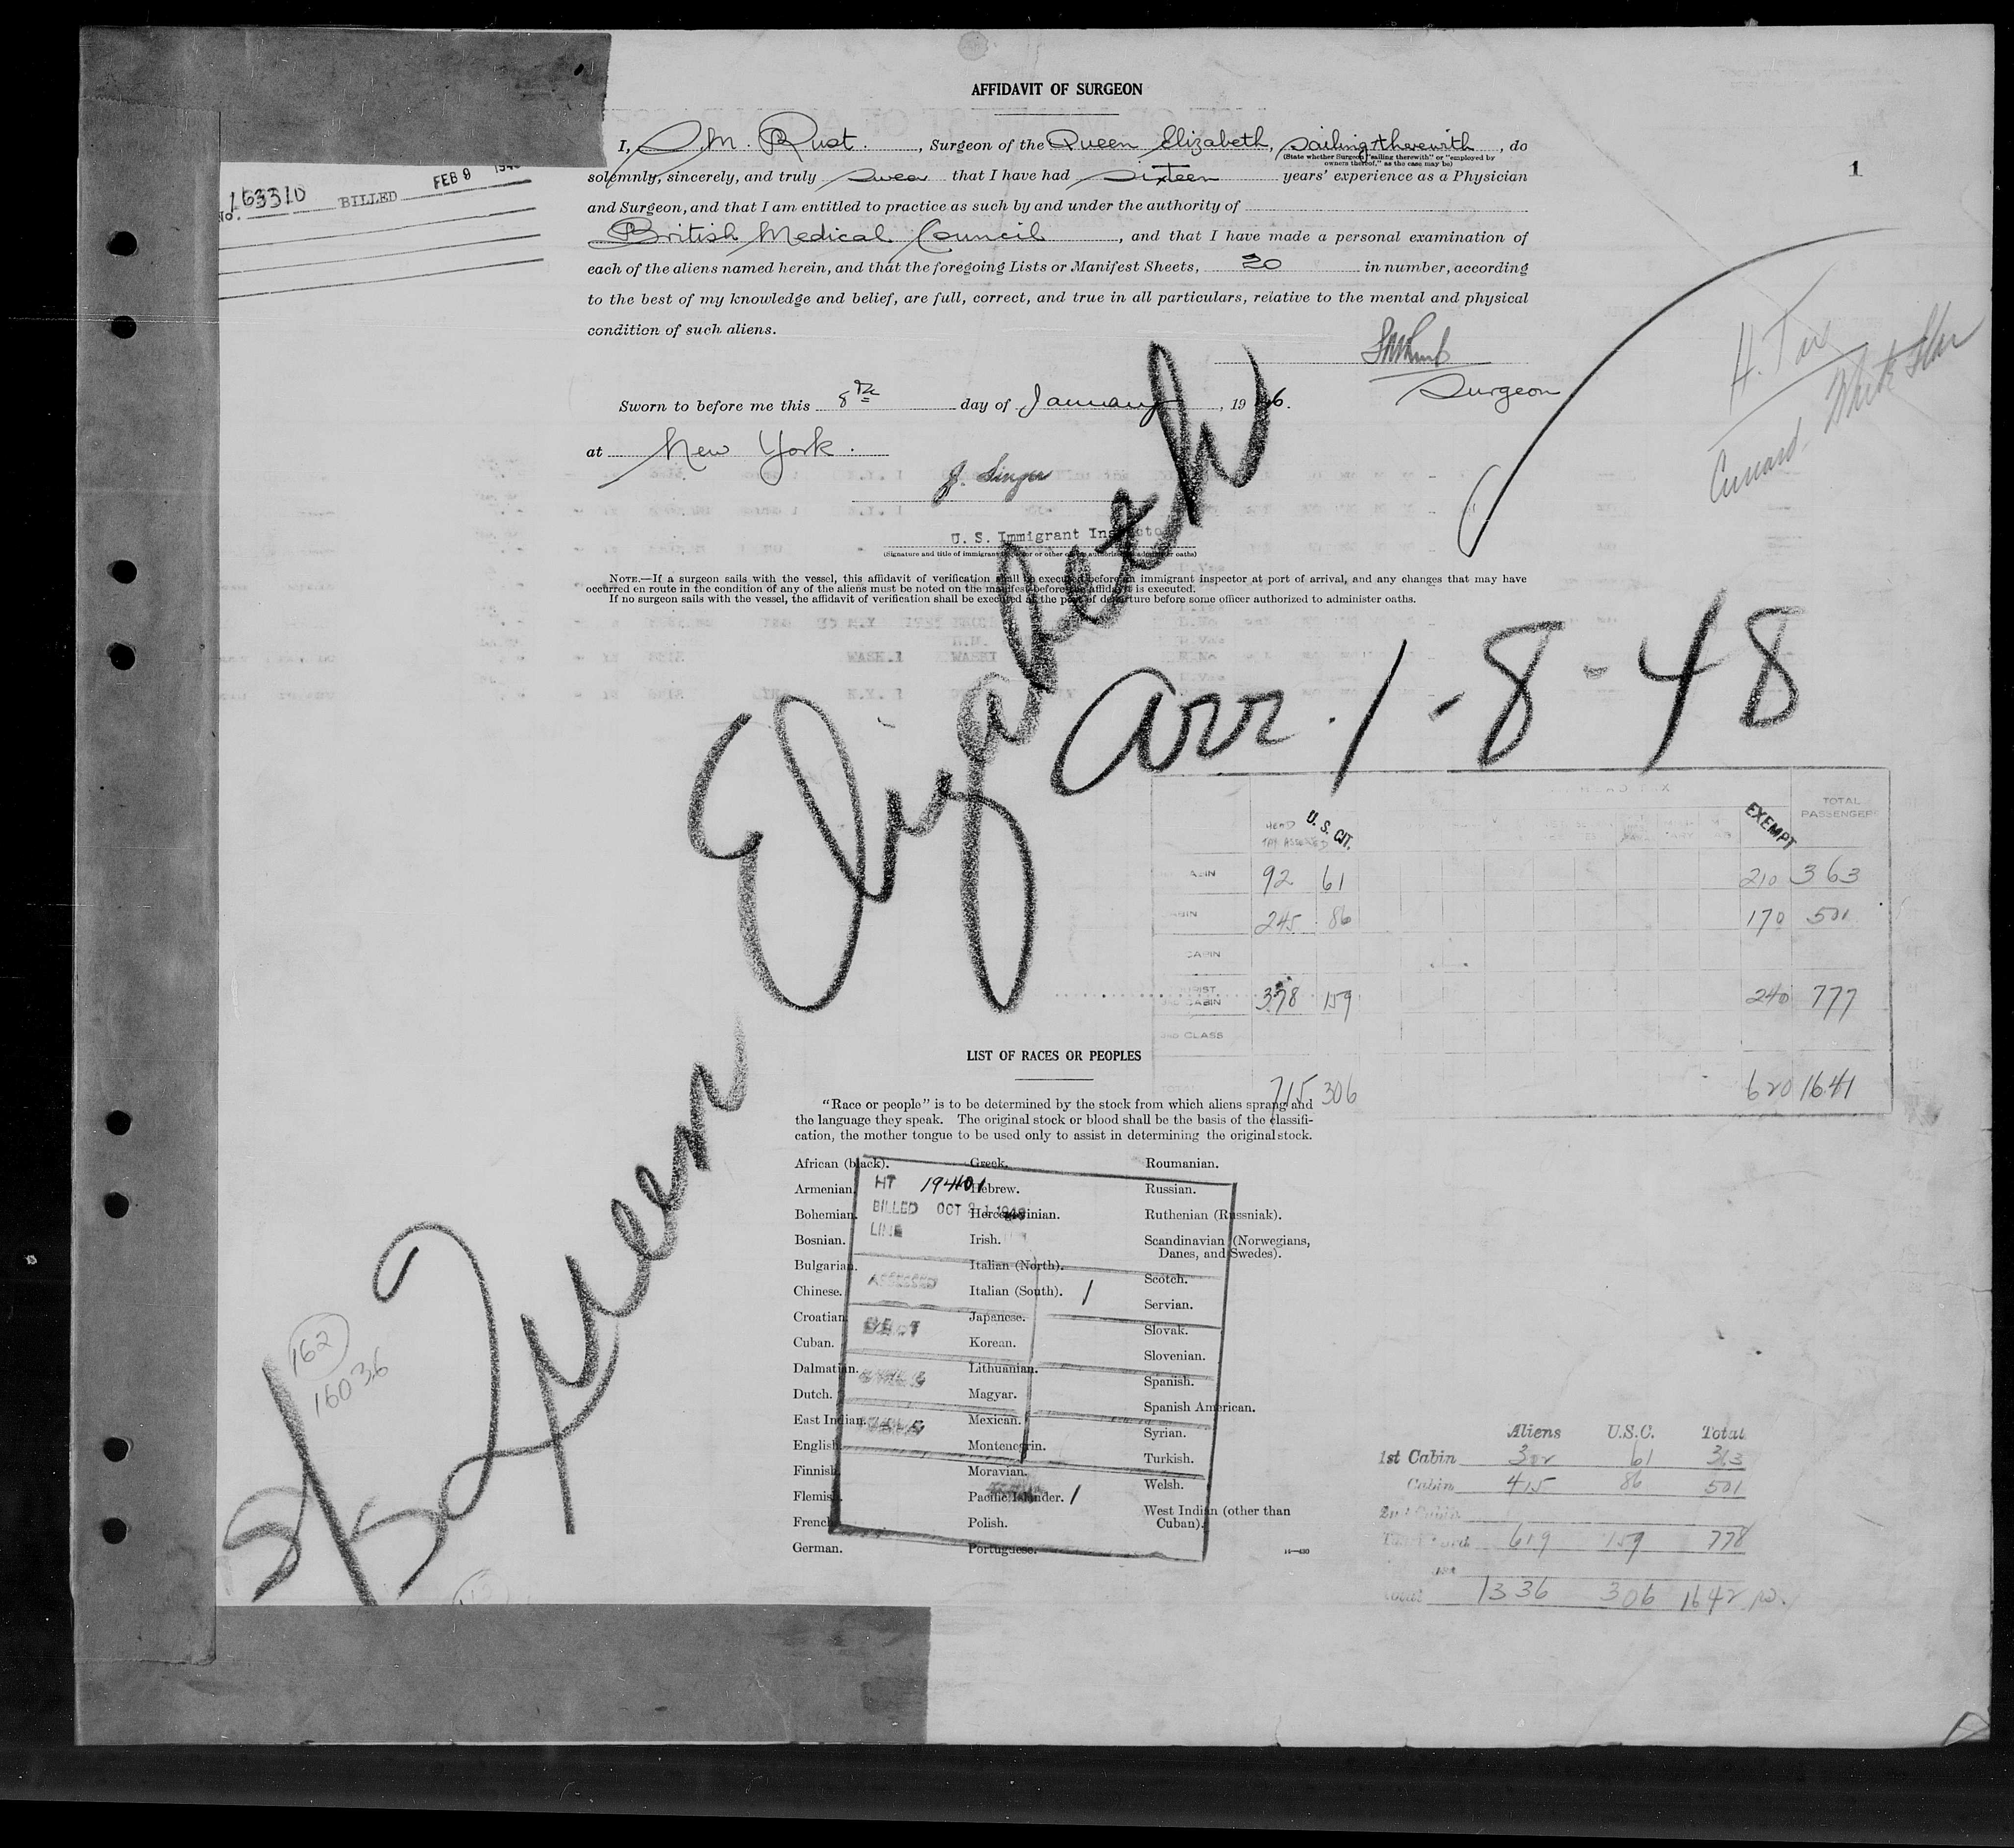 AFFIDAVIT OF SURGEON
I, S.M. Rust., Surgeon of the Queen Elizabeth, sailing therewith, do
(State whether Surgeon "sailing therewith" or "employed by
owners thereof," as the case may be)
solemnly, sincerely, and truly swear that I have had sixteen years' experience as a Physician
and Surgeon, and that I am entitled to practice as such by and under the authority of
British Medical Council, and that I have made a personal examination of
each of the aliens named herein, and that the foregoing Lists or Manifest Sheets, 20 in number, according
to the best of my knowledge and belief, are full, correct, and true in all particulars, relative to the mental and physical
condition of such aliens.
Surgeon
Sworn to before me this 8th day of January, 19
at New York.
J. Singer
U. S. Immigrant Inspector
(Signature and title of immigrant inspector or other officer authorized to administer oaths)
NOTE.—If a surgeon sails with the vessel, this affidavit of verification shall be executed before an immigrant inspector at port of arrival, and any changes that may have
occurred en route in the condition of any of the aliens must be noted on the manifest before the affidavit is executed.
If no surgeon sails with the vessel, the affidavit of verification shall be executed at the port of departure before some officer authorized to administer oaths.
1
No. 163310 BILLED FEB 9
H. Tax
Cunard White Star
S/S Queen Elizabeth
arr. 1-8-48
HEAD TAX ASSESSED U. S. CIT. EXEMPT TOTAL PASSENGERS
CABIN 92 61 210 363
CABIN 245 86 170 501
CABIN
TOURIST
3RD CABIN 378 159 240 777
3RD CLASS
715 306 620 1641
LIST OF RACES OR PEOPLES
"Race or people" is to be determined by the stock from which aliens sprang and
the language they speak. The original stock or blood shall be the basis of the classifi-
cation, the mother tongue to be used only to assist in determining the original stock.
African (black).
Armenian.
Bohemian.
Bosnian.
Bulgarian.
Chinese.
Croatian.
Cuban.
Dalmatian.
Dutch.
East Indian.
English.
Finnish.
Flemish.
French.
German.
Greek.
Hebrew.
Hercegovinian.
Irish.
Italian (North).
Italian (South).
Japanese.
Korean.
Lithuanian.
Magyar.
Mexican.
Montenegrin.
Moravian.
Pacific Islander.
Polish.
Portuguese.
Roumanian.
Russian.
Ruthenian (Russniak).
Scandinavian (Norwegians,
Danes, and Swedes).
Scotch.
Servian.
Slovak.
Slovenian.
Spanish.
Spanish American.
Syrian.
Turkish.
Welsh.
West Indian (other than
Cuban).
16—430
HT 19401
BILLED OCT
LINE
ASSESSED 1
1
162
16036
Aliens U.S.C. Total
1st Cabin 302 61 363
Cabin 415 86 501
2nd Cabin
619 159 778
Total 1336 306 1642